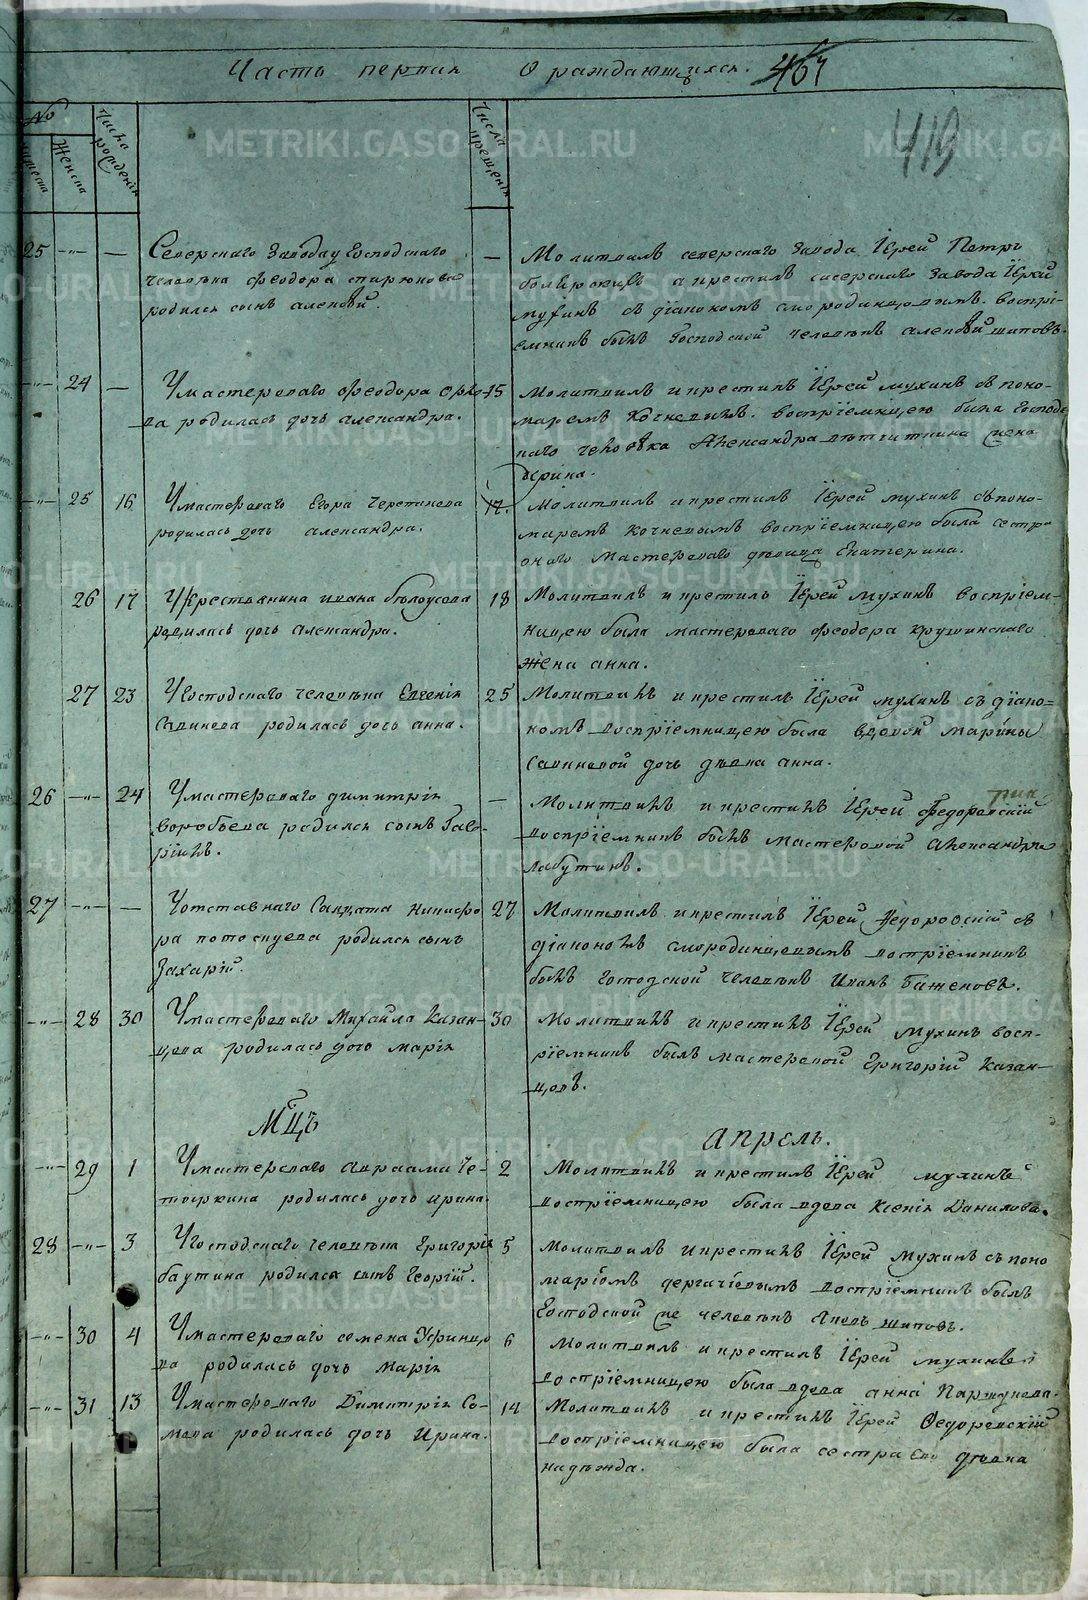 Часть первая О раждающихся. 467
419
№
Мужеска
Женска
Числа рождения
Числа крещения
25 —"— — Северскаго Завода у Господскаго
человѣка Феодора
родился сынъ алексѣй
— Молитвилъ северскаго Завода Іерей Петръ
а крестилъ сысерскаго Завода Іерей
Мухинъ съ діакономъ смородинцовымъ. воспрі-
емникъ былъ Господской человѣкъ алексѣй шиповъ.
—"— 24 — У мастероваго Феодора
ва родилась дочь александра.
15 Молитвилъ и крестилъ Іерей мухинъ съ поно-
маремъ Кочневымъ. воспріемницею была Господс
каго человѣка Александра жена
Ирина.
—"— 25 16 У мастероваго Егора
родилась дочь александра.
17. Молитвилъ и крестилъ Іерей мухинъ съ поно-
маремъ кочневымъ воспріемницею была сестра
онаго мастероваго девица Екатерина.
26 17 У Крестьянина ивана бѣлоусова
родилась дочь александра.
18 Молитвилъ и крестилъ Іерей Мухинъ воспріем-
ницею была мастероваго Феодора крушинскаго
жена анна.
27 23 У Господскаго человѣка Евгенія
Савинова родилась дочь анна.
25 Молитвилъ и крестилъ Іерей мухинъ съ діако=
номъ воспріемницею была вдовой марины
Савиновой дочь дѣвка анна.
26 —"— 24 У мастероваго димитрія
воробьева родился сынъ Гав-
ріилъ.
— Молитвилъ и крестилъ Іерей Федоровскій
воспріемникъ былъ мастеровой Александръ
лабутинъ.
27 —"— — У отставнаго Салдата никифо
ра потоскуева родился сынъ
Захарій.
27 Молитвилъ и крестилъ Іерей Федоровскій съ
діакономъ смородинцовымъ воспріемникъ
былъ господской человѣкъ Иванъ Баженовъ.
—"— 28 30 У мастероваго Михайла Казан-
цова родилась дочь марія
30 Молитвилъ и крестилъ Іерей Мухинъ восп-
ріемникъ былъ мастеровой Григорій Казан-
цовъ.
Мцъ Апрель.
—"— 29 1 У мастероваго Авраама Че-
тыркина родилась дочь ирина.
2 Молитвилъ и крестилъ Іерей мухинъ
воспріемницею была вдова Ксенія Данилова.
28 —"— 3 У господскаго человѣка Григорія
баутина родился сынъ Георгій.
5 Молитвилъ и крестилъ Іерей Мухинъ съ поно
маріомъ дергачіовымъ воспріемникъ былъ
Господской человѣкъ Яковъ шиповъ.
—"— 30 4 У мастероваго семена Уфинцо
ва родилась дочь марія
6 Молитвилъ и крестилъ Іерей мухинъ
воспріемницею была вдова анна Паршукова.
—"— 31 13 У мастероваго Димитрія Со-
мова родилась дочь Ирина.
14 Молитвилъ и крестилъ Іерей Федоровскій
воспріемницею была сестра его дѣвка
надѣжда.
METRIKI.GASO-URAL.RU